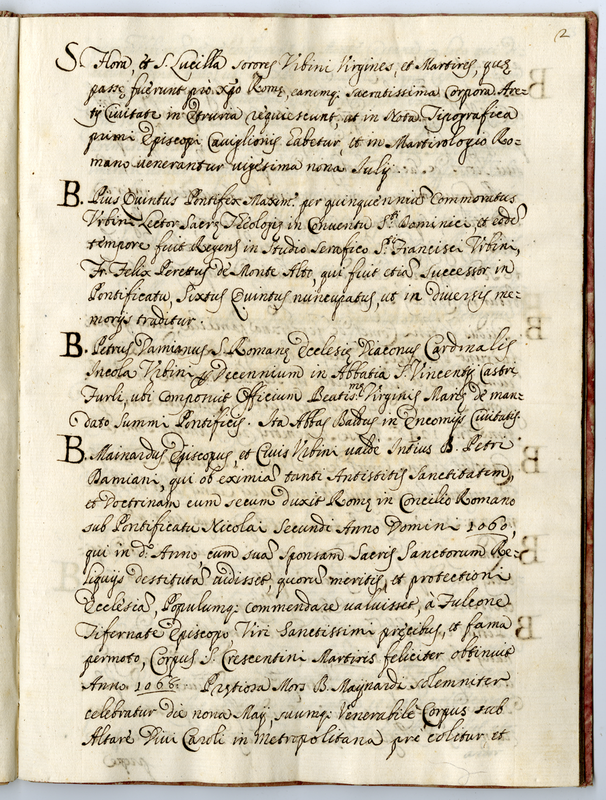 2
S. Flora, et S. Lucilla sorores Vrbini Virgines, et Martires, quę
passę fuerunt pro Xp̃o Romę, earumq; Sacratissima Corpora Are-
tij Civitate in Etruria requiescunt, ut in Nota Tipografica
primi Episcopi Caviglionis habetur, et in Martirologio Ro-
mano venerantur vigesima nona Iulij
B. Pius Quintus Pontifex Maxim. per quinquenniũ Commoratus
Vrbini Lector Sacrę Theologię in Conventu S.ti Dominici, et eodẽ
tempore fuit Regens in Studio Serafico S.ti Francisci Vrbini,
Fr. Felix Perettus de Monte Alto, qui fuit etiã successor in
Pontificatu, Sixtus Quintus nuncupatus, ut in diversis me-
morijs traditur.
B. Petrus Damianus S. Romanę Ecclesię Diaconus Cardinalis
Incola Vrbini p Decennium in Abbatia S. Vincentij Castri
Furli, ubi Composuit Officium Beatissmę Virginis Marię de man-
dato Summi Pontificis. Ita Abbas Baldus in Encomijs Civitatis.
B. Mainardus Episcopus, et Civis Vrbini valde Intius B. Petri
Damiani, qui ob eximiã tanti Antistitis Sanctitatem,
et Doctrinam eum secum duxit Romę in Concilio Romano
sub Pontificatu Nicolai Secundi Anno Domini 1060,
qui in d.o Anno cum suã sponsam Sacris Sanctorum Re-
liquijs destitutã vidisset, quorũ meritis, et protectioni
Ecclesiã, Populumq; commendare valuisset, à Fulcone
Tifernate Episcopo Viri Sanctissimi pręcibus, et fama
permoto, Corpus S. Crescentini Martiris feliciter obtinuit
Anno 1068. Prętiosa Mors B. Maynardi solemniter
celebratur die nona Maij, suumq; Venerabile Corpus sub
Altare Divi Caroli in Metropolitana pre colitur et